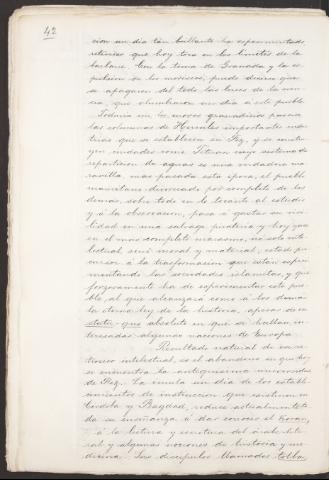 42
cion un dia tan brillante ha experimentado
retrocesos que hoy toca en los limites de la
barbarie. Con la toma de Granada y la ex-
pulsion de los moriscos, puede decirse que
se apagaron del todo las luces de la cien-
cia, que alumbraron un dia á este pueblo.
Todavia en los moros granadinos pasan
las columnas de Hercules importantes
que se establecen en Fez, y se
en ciudades como Tetuan cuyo sistema de
reparticion de aguas es una verdadera ma-
ravilla, mas pasada esta época, el pueblo
mauritano divorciado por completo de los
demas, sobre todo en lo tocante al estudio
y á la observacion, pasa á gastar su
lidad en una salvage pirateria y hoy yace
en el mas completo marasmo, no solo inte-
lectual sino moral y material, estado pre-
cursor á la trasformacion que están esperi-
mentando las sociedades islamitas, y que
forzosamente ha de experimentar este pue-
blo, al que alcanzará como á los demas
la eterna ley de la historia, apesar de su
statu-quo absoluto en que se hallan in-
teresadas algunas naciones de Europa.
Resultado natural de ese re-
troceso intelectual, es el abandono en que hoy
se encuentra la antiquisima universidad
de Fez. La émula un dia de los estable-
cimientos de instruccion que existieron en
Cordoba y Bagdad, reduce actualmente to-
da su enseñanza á dar conocer el Koran,
á la lectura y escritura del árabe lite-
ral y algunas nociones de historia y me-
dicina. Sus discipulos llamados tolba,